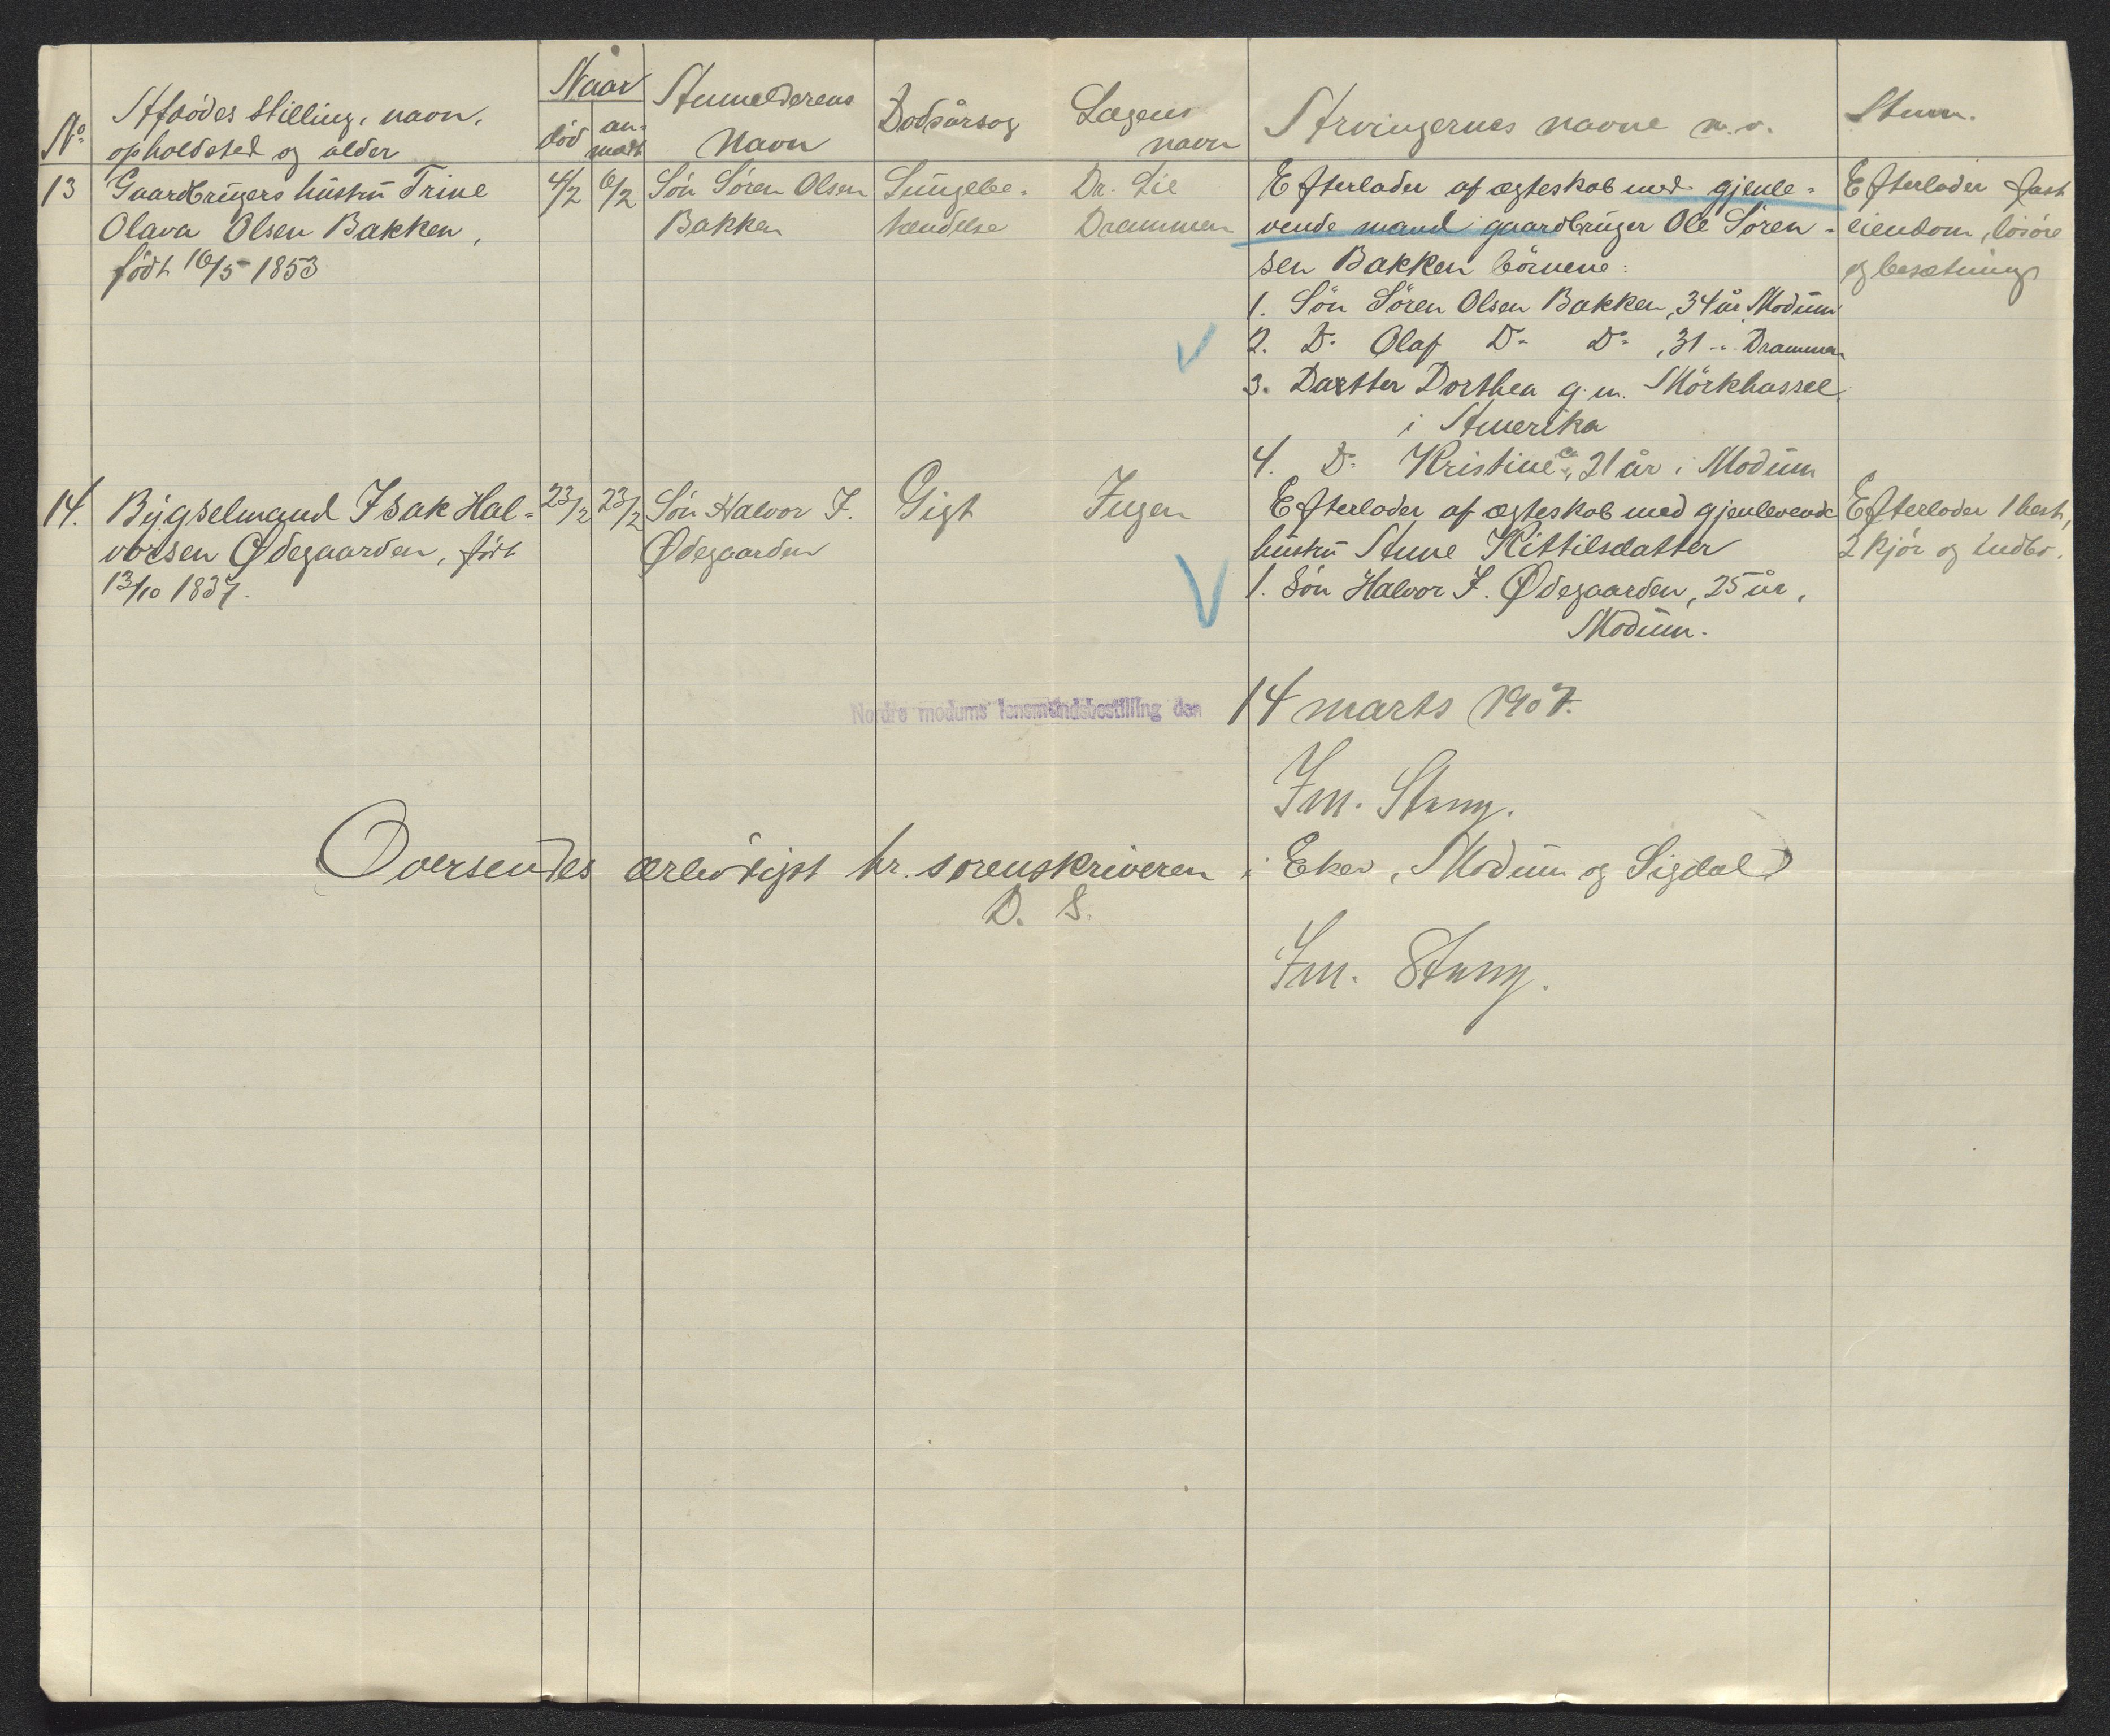 No
Afdødes stilling, navn,
opholdsted og alder
Naar
død
an-
meldt
Anmelderens
Navn
Dødsårsag
Lægens
navn
Arvingernes navne m.v.
Anm.
13
Gaardbrugers hustru Trine
Olava Olsen Bakken,
født 16/5 1853
4/2
6/2
Søn Søren Olsen
Bakken
Lungebe-
tændelse
Dr. Lie
Drammen
Efterlader af ægteskab med gjenle-
vende mand gaardbruger Ole Søren-
sen Bakken børnene:
1. Søn Søren Olsen Bakken, 34 år Modum
2. Do Olaf Do Do, 31 " Drammen
3. Datter Dorthea g.m. Mørkhassel
i Amerika
4. Do Kristine 21 år i Modum
Efterlader fast
eiendom, løsøre
og besætning
14.
Bygselmand Isak Hal-
vorsen Ødegaarden, født
13/10 1837.
23/2
23/2
Søn Halvor I.
Ødegaarden
Gigt
Ingen
Efterlader af ægteskab med gjenlevende
hustru Anne Kittilsdatter
1. Søn Halvor I. Ødegaarden, 25 år,
Modum.
Efterlader 1 hest,
2 kjør og indbo.
Nordre modums lensmandsbestilling den 14 marts 1907.
Oversendes ærbødigst hr. sorenskriveren i Eker, Modum og Sigdal
D. S.